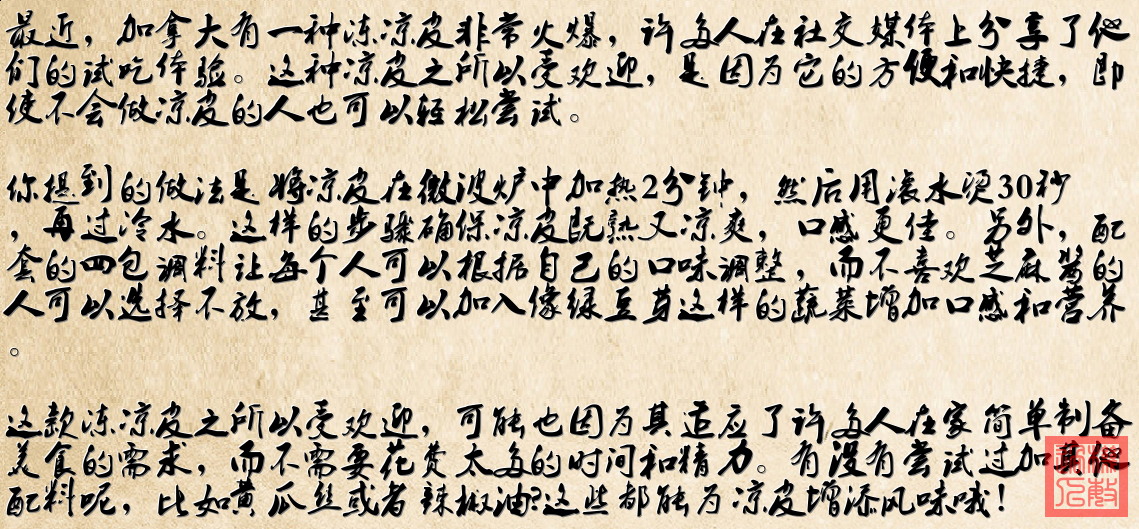 最近，加拿大有一种冻凉皮非常火爆，许多人在社交媒体上分享了他
们的试吃体验。这种凉皮之所以受欢迎，是因为它的方便和快捷，即
使不会做凉皮的人也可以轻松尝试。
你提到的做法是将凉皮在微波炉中加热2分钟，然后用滚水烫30秒
，再过冷水。这样的步骤确保凉皮既熟又凉爽，口感更佳。另外，配
套的四包调料让每个人可以根据自己的口味调整，而不喜欢芝麻酱的
人可以选择不放，甚至可以加入像绿豆芽这样的蔬菜增加口感和营养
。
这款冻凉皮之所以受欢迎，可能也因为其适应了许多人在家简单制备
美食的需求，而不需要花费太多的时间和精力。有没有尝试过加其他
配料呢，比如黄瓜丝或者辣椒油?这些都能为凉皮增添风味哦!